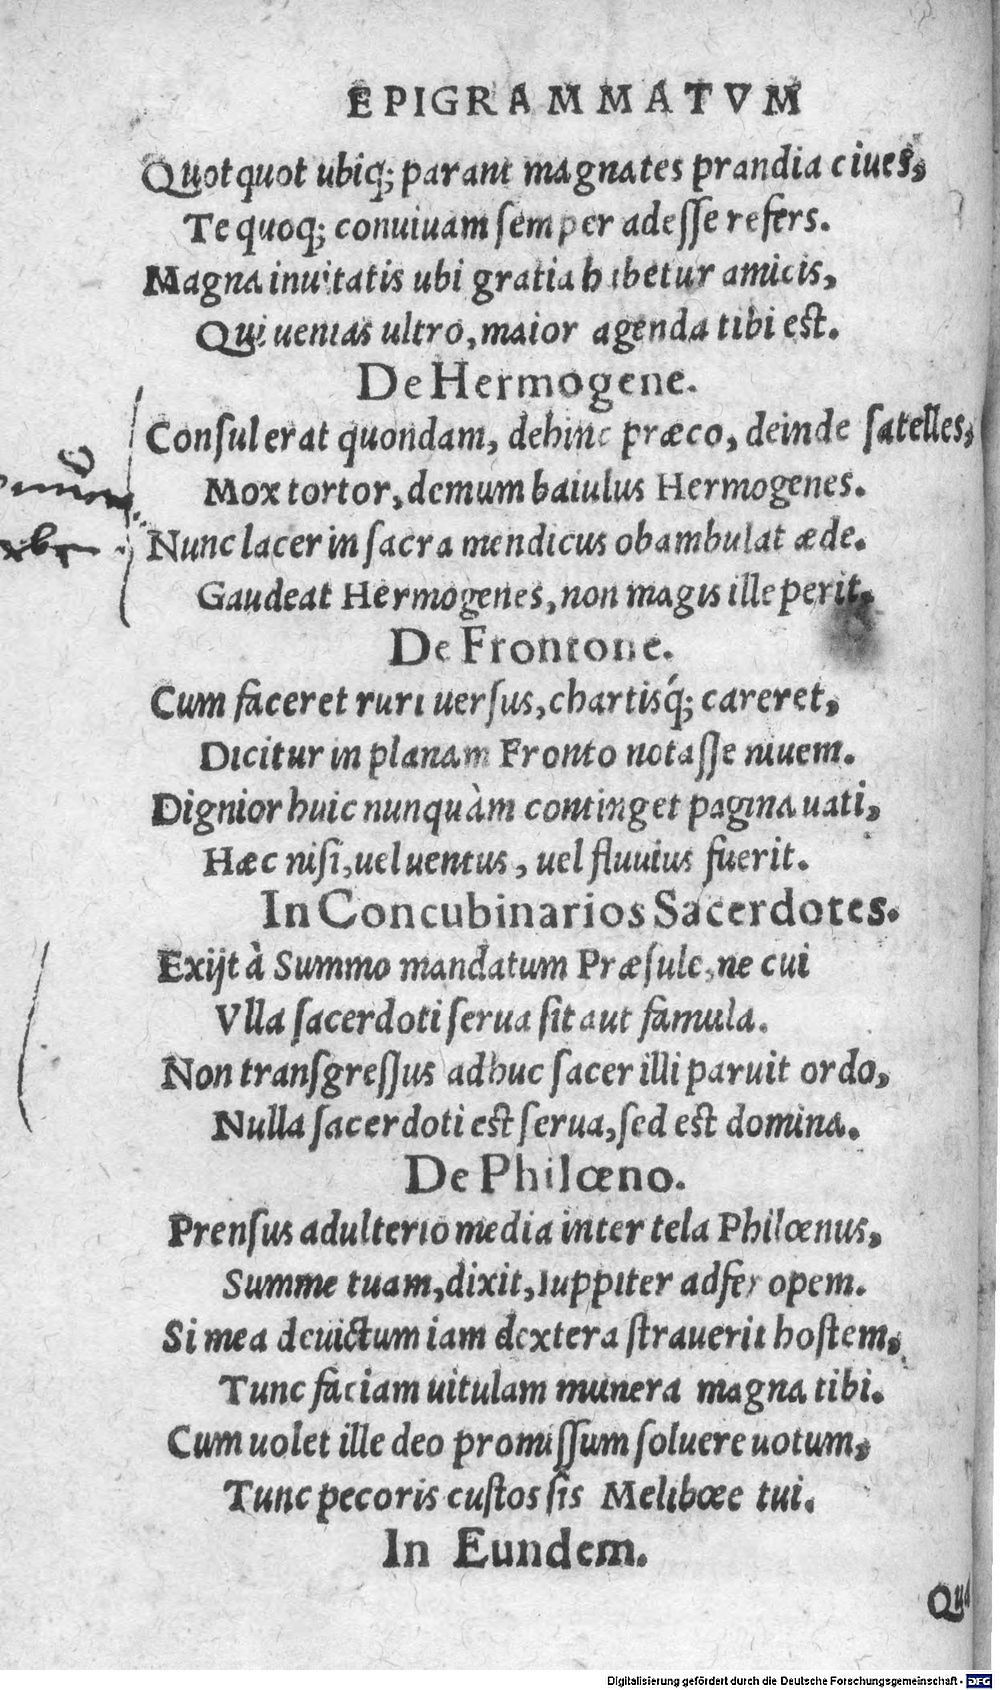 EPIGRAMMATVM
Quotquot ubiq; parant magnates prandia ciues,
Te quoq; conuiuam semper adesse refers.
Magna inuitatis ubi gratia habetur amicis,
Qui uenias ultro, maior agenda tibi est.
De Hermogene.
Consul erat quondam, dehinc præco, deinde satelles,
Mox tortor, demum baiulus Hermogenes.
Nunc lacer in sacra mendicus obambulat æde.
Gaudeat Hermogenes, non magis ille perit.
De Frontone.
Cum faceret ruri uersus, chartisq́; careret,
Dicitur in planam Fronto notasse niuem.
Dignior huic nunquàm continget pagina uati,
Hæc nisi, uel uentus, uel fluuius fuerit.
In Concubinarios Sacerdotes.
Exijt à Summo mandatum Præsule, ne cui
Vlla sacerdoti serua sit aut famula.
Non transgressus adhuc sacer illi paruit ordo,
Nulla sacerdoti est serua, sed est domina.
De Philœno.
Prensus adulterio media inter tela Philœnus,
Summe tuam, dixit, Iuppiter adfer opem.
Si mea deuictum iam dextera strauerit hostem,
Tunc faciam uitulam munera magna tibi.
Cum uolet ille deo promissum soluere uotum,
Tunc pecoris custos sis Melibœe tui.
In Eundem.
Qua
Digitalisierung gefördert durch die Deutsche Forschungsgemeinschaft - DFG